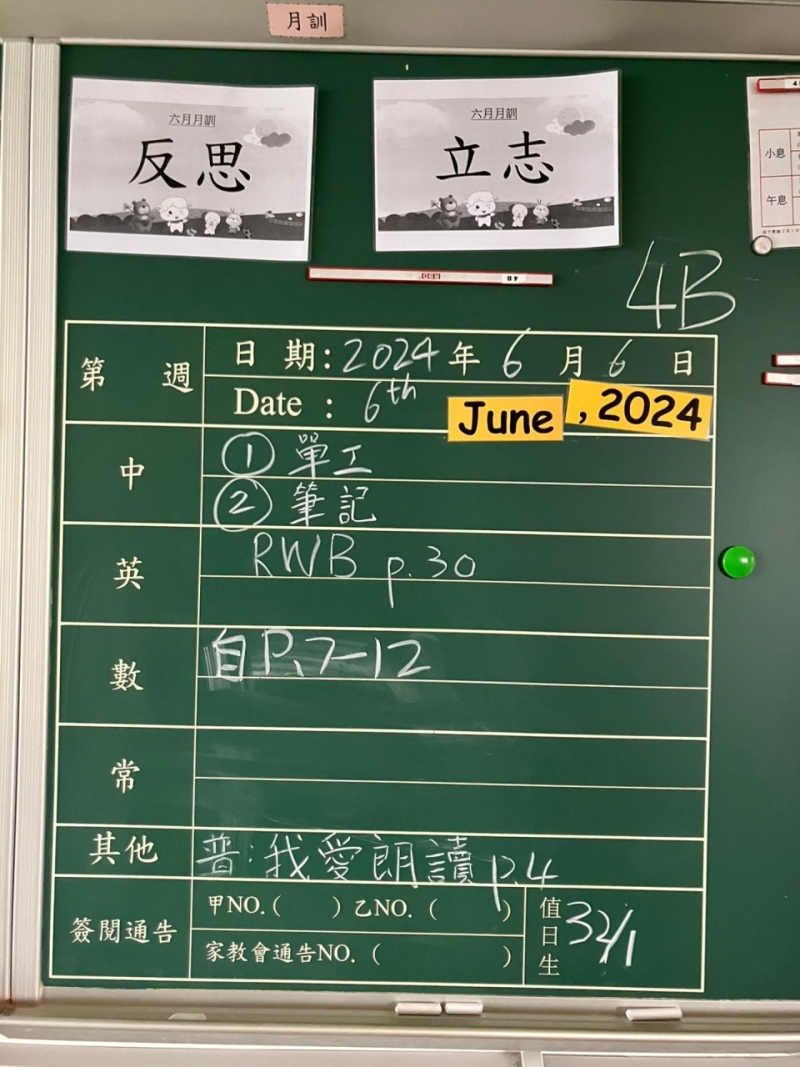 月訓
六月月訓
反思
六月月訓
立志
小息
午息
4B
第 週
日 期: 2024 年 6 月 6 日
Date : 6th June , 2024
中
① 單工
② 筆記
英
RWB p.30
數
自P.7-12
常
其他
普:我愛朗讀 p.4
簽閱通告
甲NO.( ) 乙NO. ( )
家教會通告NO. ( )
值日生
32/1